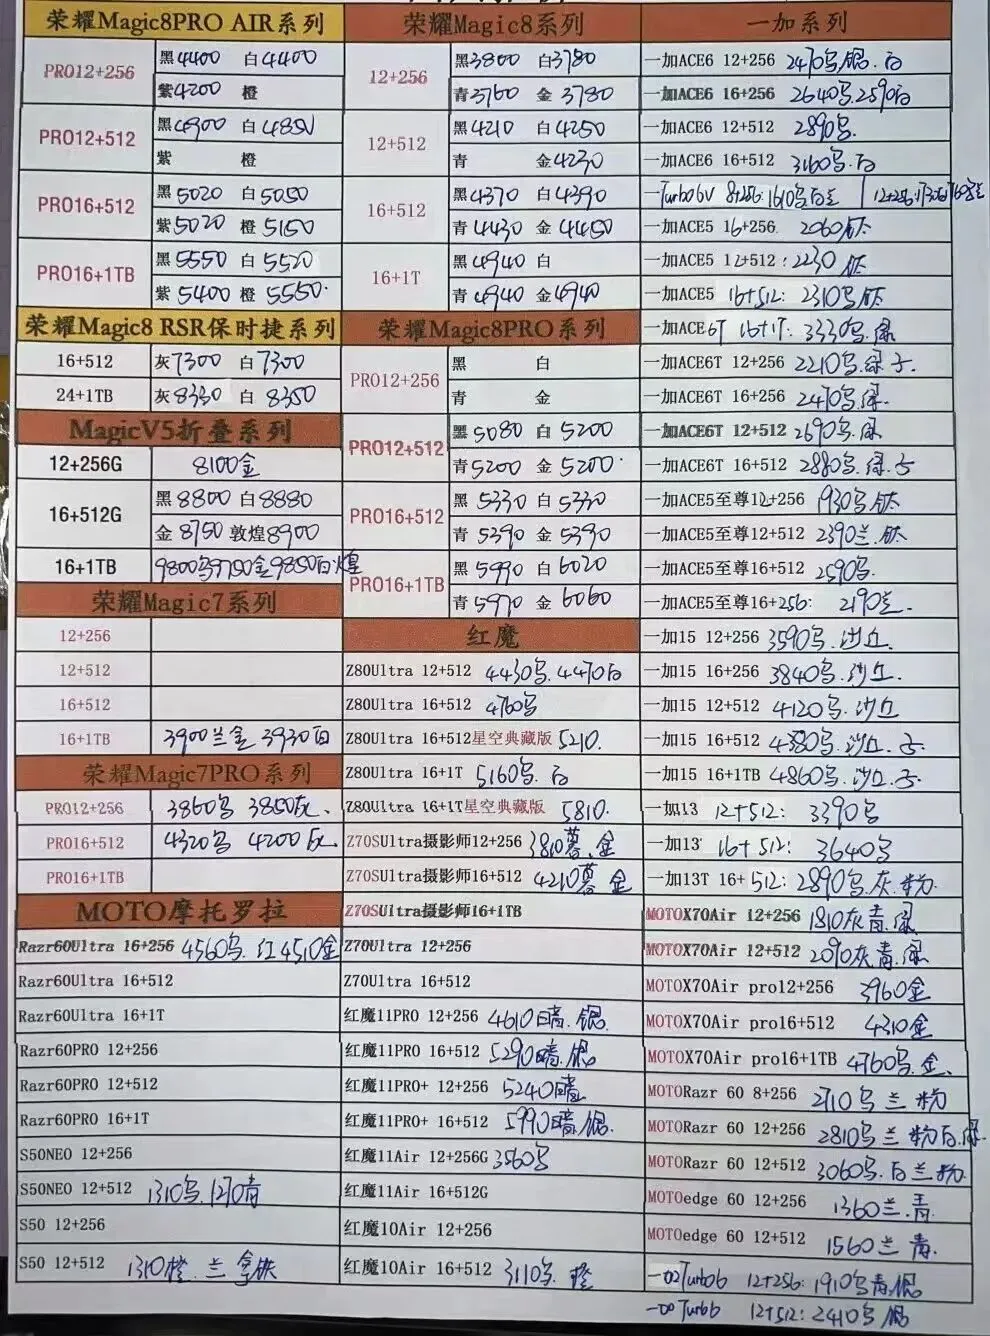 荣耀Magic8PRO AIR系列
PRO12+256 黑4400 白4400
紫4200 橙
PRO12+512 黑4900 白4850
紫 橙
PRO16+512 黑5020 白5050
紫5020 橙5150
PRO16+1TB 黑5550 白5520
紫5400 橙5550
荣耀Magic8 RSR保时捷系列
16+512 灰7300 白7300
24+1TB 灰8330 白8350
MagicV5折叠系列
12+256G 8100金
16+512G 黑8800 白8880
金8750 敦煌8900
16+1TB 9800乌9750金9850白煌
荣耀Magic7系列
12+256
12+512
16+512
16+1TB 3900兰金 3930白
荣耀Magic7PRO系列
PRO12+256 3860乌 3850灰
PRO16+512 4320乌 4200灰
PRO16+1TB
MOTO摩托罗拉
Razr60Ultra 16+256 4560乌.红4510金
Razr60Ultra 16+512
Razr60Ultra 16+1T
Razr60PRO 12+256
Razr60PRO 12+512
Razr60PRO 16+1T
S50NEO 12+256
S50NEO 12+512 1310乌.1270青
S50 12+256
S50 12+512 1310橙.兰 拿铁
荣耀Magic8系列
12+256 黑3800 白3780
青3760 金3780
12+512 黑4210 白4250
青 金4230
16+512 黑4370 白4390
青4430 金4450
16+1T 黑4940 白
青4940 金4940
荣耀Magic8PRO系列
PRO12+256 黑 白
青 金
PRO12+512 黑5080 白5200
青5200 金5200
PRO16+512 黑5330 白5330
青5390 金5390
PRO16+1TB 黑5990 白6020
青5970 金6060
红魔
Z80Ultra 12+512 4430乌.4470白
Z80Ultra 16+512 4760乌
Z80Ultra 16+512星空典藏版 5210.
Z80Ultra 16+1T 5160乌.白
Z80Ultra 16+1T星空典藏版 5810.
Z70SUltra摄影师12+256 3810暮.金
Z70SUltra摄影师16+512 4210暮 金
Z70SUltra摄影师16+1TB
Z70Ultra 12+256
Z70Ultra 16+512
红魔11PRO 12+256 4610暗.银
红魔11PRO 16+512 5290暗.银
红魔11PRO+ 12+256 5240暗
红魔11PRO+ 16+512 5990暗.银
红魔11Air 12+256G 3560乌
红魔11Air 16+512G
红魔10Air 12+256
红魔10Air 16+512 3110乌.橙
一加系列
一加ACE6 12+256 2470乌银.白
一加ACE6 16+256 2640乌.2590白
一加ACE6 12+512 2890乌.
一加ACE6 16+512 3160乌.白
一Turbo6V 8+256:1610乌白兰 12+256:1730白
一加ACE5 16+256. 2060钛
一加ACE5 12+512:2230 钛
一加ACE5 16+512:2310乌钛
一加ACE6T 16+1T:3330乌.绿
一加ACE6T 12+256 2210乌.绿.子.
一加ACE6T 16+256 2470乌.绿.
一加ACE6T 12+512 2690乌.绿
一加ACE6T 16+512 2880乌.绿.子
一加ACE5至尊12+256 1930乌.钛
一加ACE5至尊12+512 2390兰.钛
一加ACE5至尊16+512 2590乌.
一加ACE5至尊16+256: 2190兰.
一加15 12+256 3590乌.沙丘
一加15 16+256 3840乌.沙丘.
一加15 12+512 4120乌.沙丘
一加15 16+512 4380乌.沙丘.子
一加15 16+1TB 4860乌.沙丘.子.
一加13 12+512: 3390乌
一加13 16+512: 3640乌
一加13T 16+512:2890乌.灰.粉.
MOTOX70Air 12+256 1810灰青.绿
MOTOX70Air 12+512 2090灰青.绿
MOTOX70Air pro12+256 3960金
MOTOX70Air pro16+512 4310金
MOTOX70Air pro16+1TB 4760乌.金.
MOTORazr 60 8+256 2710乌 兰 粉
MOTORazr 60 12+256 2810乌 兰 粉白.绿
MOTORazr 60 12+512 3060乌.白兰粉.
MOTOedge 60 12+256 1360兰.青
MOTOedge 60 12+512 1560兰 青.
Turbo6 12+256:1910乌青.银
Turbo6 12+512:2410乌 银